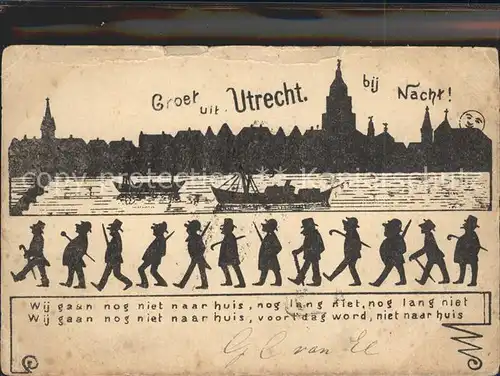 Groet uit Utrecht. bij Nacht!
Wij gaan nog niet naar huis, nog lang niet, nog lang niet
Wij gaan nog niet naar huis, voort dag word, niet naar huis
G C van El